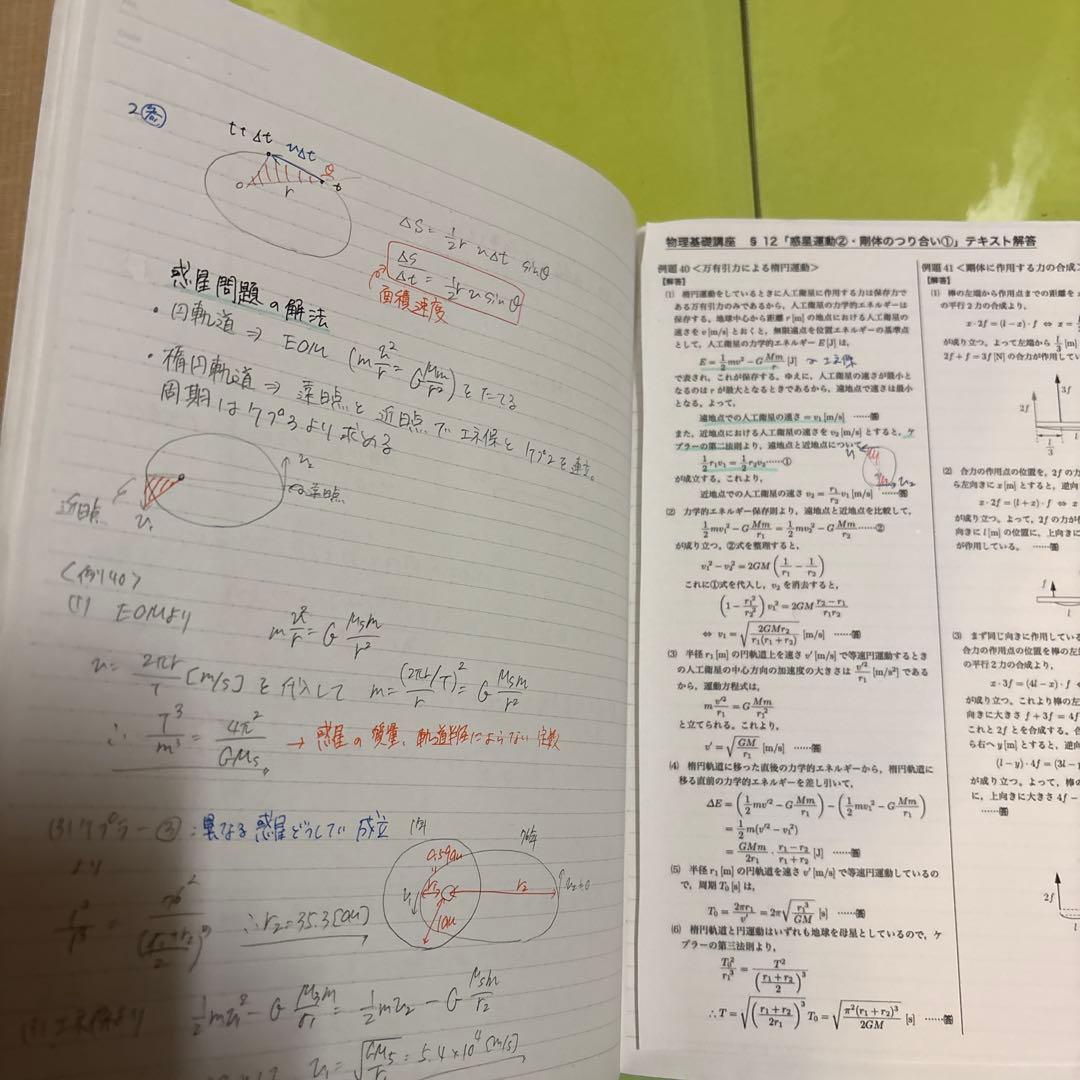 2
t+Δt
vΔt
θ
t
o
r
ΔS = 1/2 r vΔt sinθ
ΔS/Δt = 1/2 r v sinθ
面積速度
惑星問題の解法
・円軌道 ⇒ EOM (m v²/r = G Mm/r²) をたてる
・楕円軌道 ⇒ 遠日点と近日点でエネ保とケプ2を連立。
周期はケプ3より求める
v₂
遠日点
近日点
v₁
<例40>
(1) EOMより
m v²/r = G Msm/r²
v = 2πr/T [m/s] を代入して m = (2πr/T)²/r = G Msm/r²
∴ T³/m³ = 4π²/GMs → 惑星の質量、軌道半径によらない定数
(3) ケプラー③:異なる惑星どうしで成立
より
1年
76年
0.59au
r₁
r₂
v₁
1au
∴ r₂ = 35.3[au]
エネ保より 1/2 mv₁² - G Msm/r₁ = 1/2 mv₂ - G Msm/r₂
v₁ = √GMs/r₁ = 5.4×10⁴ [m/s]
物理基礎講座 §12「惑星運動②・剛体のつり合い①」テキスト解答
例題40<万有引力による楕円運動>
【解答】
(1) 楕円運動をしているときに人工衛星に作用する力は保存力で
ある万有引力のみであるから、人工衛星の力学的エネルギーは
保存する。地球中心から距離 r[m] の地点における人工衛星の
速さを v[m/s] とおくと、無限遠点を位置エネルギーの基準点
として、人工衛星の力学的エネルギー E[J] は、
E = 1/2 mv² - G Mm/r [J] エネ保
で表され、これが保存する。ゆえに、人工衛星の速さが最小と
なるのは r が最大となるときであるから、遠地点で速さは最小
となる。よって、
遠地点での人工衛星の速さ = v₁ [m/s] ……答
また、近地点における人工衛星の速さを v₂ [m/s] とすると、ケ
プラーの第二法則より、遠地点と近地点について
1/2 r₁v₁ = 1/2 r₂v₂ ……①
が成立する。これより、
近地点での人工衛星の速さ v₂ = r₁/r₂ v₁ [m/s] ……答
(2) 力学的エネルギー保存則より、遠地点と近地点を比較して、
1/2 mv₁² - G Mm/r₁ = 1/2 mv₂² - G Mm/r₂ ……②
が成り立つ。②式を整理すると、
v₁² - v₂² = 2GM (1/r₁ - 1/r₂)
これに①式を代入し、v₂ を消去すると、
(1 - r₁²/r₂²) v₁² = 2GM r₂-r₁/r₁r₂
⇔ v₁ = √2GMr₂/r₁(r₁+r₂) [m/s] ……答
(3) 半径 r₁ [m] の円軌道上を速さ v′ [m/s] で等速円運動するとき
の人工衛星の中心方向の加速度の大きさは v′²/r₁ [m/s²] である
から、運動方程式は、
m v′²/r₁ = G Mm/r₁²
と立てられる。これより、
v′ = √GM/r₁ [m/s] ……答
(4) 楕円軌道に移った直後の力学的エネルギーから、楕円軌道に
移る直前の力学的エネルギーを差し引いて、
ΔE = (1/2 mv′² - G Mm/r₁) - (1/2 mv₁² - G Mm/r₁)
= 1/2 m(v′² - v₁²)
= GMm/2r₁ · r₁-r₂/r₁+r₂ [J] ……答
(5) 半径 r₁ [m] の円軌道を速さ v′ [m/s] で等速円運動しているの
で、周期 T₀ [s] は、
T₀ = 2πr₁/v′ = 2π√r₁³/GM [s] ……答
(6) 楕円軌道と円運動はいずれも地球を母星としているので、ケ
プラーの第三法則より、
T₀²/r₁³ = T²/(r₁+r₂/2)³
∴T = √(r₁+r₂/2r₁)³ T₀ = √π²(r₁+r₂)³/2GM [s] ……答
例題41<剛体に作用する力の合成>
【解答】
(1) 棒の左端から作用点までの距離を
の平行2力の合成より、
x·2f = (l-x)·f ⇔ x =
が成り立つ。よって左端から l/3 [m]
2f + f = 3f [N] の合力が作用してい
3f
2f
l/3
(2) 合力の作用点の位置を、2f の力
ら左向きに x[m] とすると、逆向
x·2f = (l+x)·f ⇔ x
が成り立つ。よって、2f の力が
向きに l[m] の位置に、上向きに
が作用している。 ……答
f
(3) まず同じ向きに作用している
合力の作用点の位置を棒の左
の平行2力の合成より、
x·3f = (4l-x)·f ⇔
が成り立つ。これより棒の左
向きに大きさ f+3f = 4f
これと 2f とを合成する。合
ら右へ y[m] とすると、逆向
(l-y)·4f = (3l-
が成り立つ。よって、棒の
に、上向きに大きさ 4f-
……答